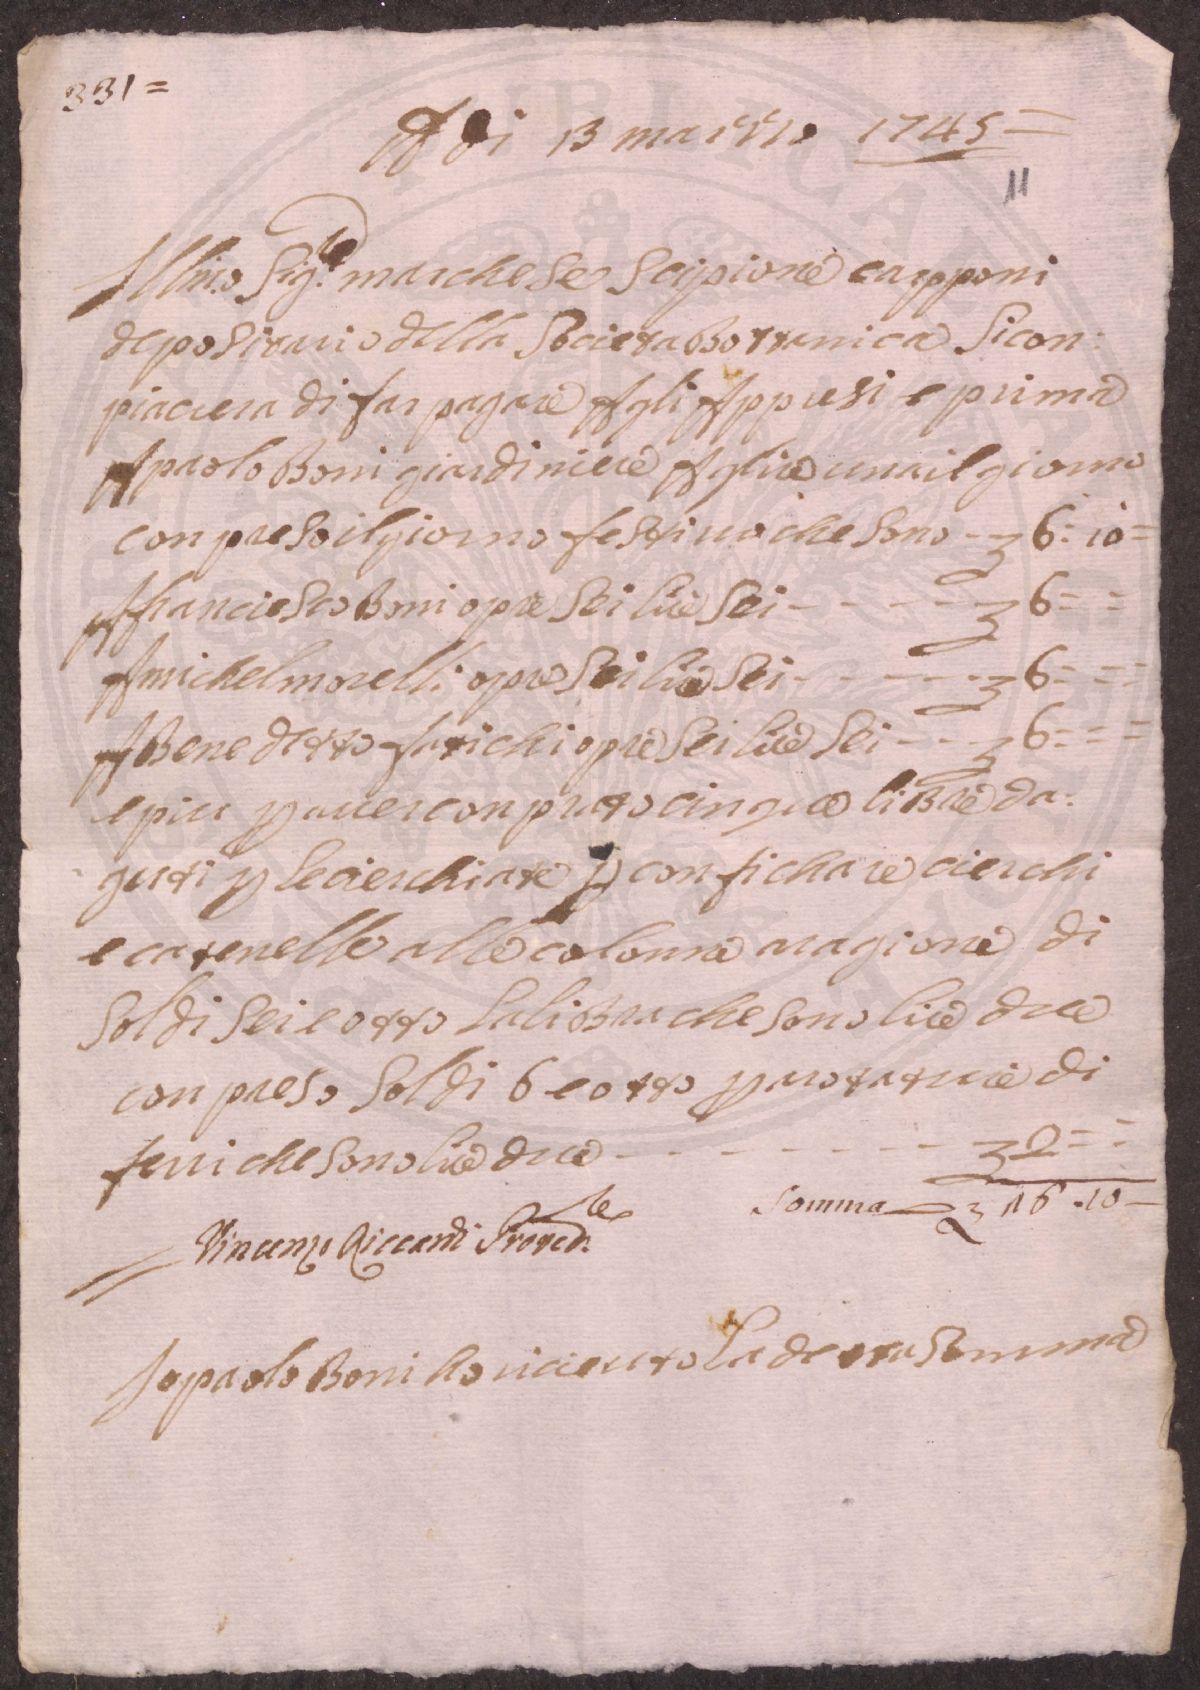 331=
A di 13 marzzo 1745=
11
Illmo Sig.re marchese Scipione capponi
depositario della Societa Bottanica Si con:
piacera di far pagare Agli Appresi e prima
A paolo Boni giardiniere A lire una il giorno
conpreso il giorno festivo che sono - 6: 10=
A franciesco Boni opre sei lire sei - - - - 6= =
A michel morelli opre sei lire sei - - - - 6= = =
A Benedetto fatichi opre sei lire sei - - - 6= = =
e piu p aver conprato cinque libbre da:
guti p le cierchiate p confichare cierchi
e catenelle alle colonne a ragione di
soldi sei e otto la libbra che sono lire due
conpreso soldi 6 e otto p arotature di
ferri che sono lire due - - - - - - - - 2= =
Somma 26 -10-
Vincenzo Riccardi Proved.re
Io paolo Boni ho riceuto La detta Somma